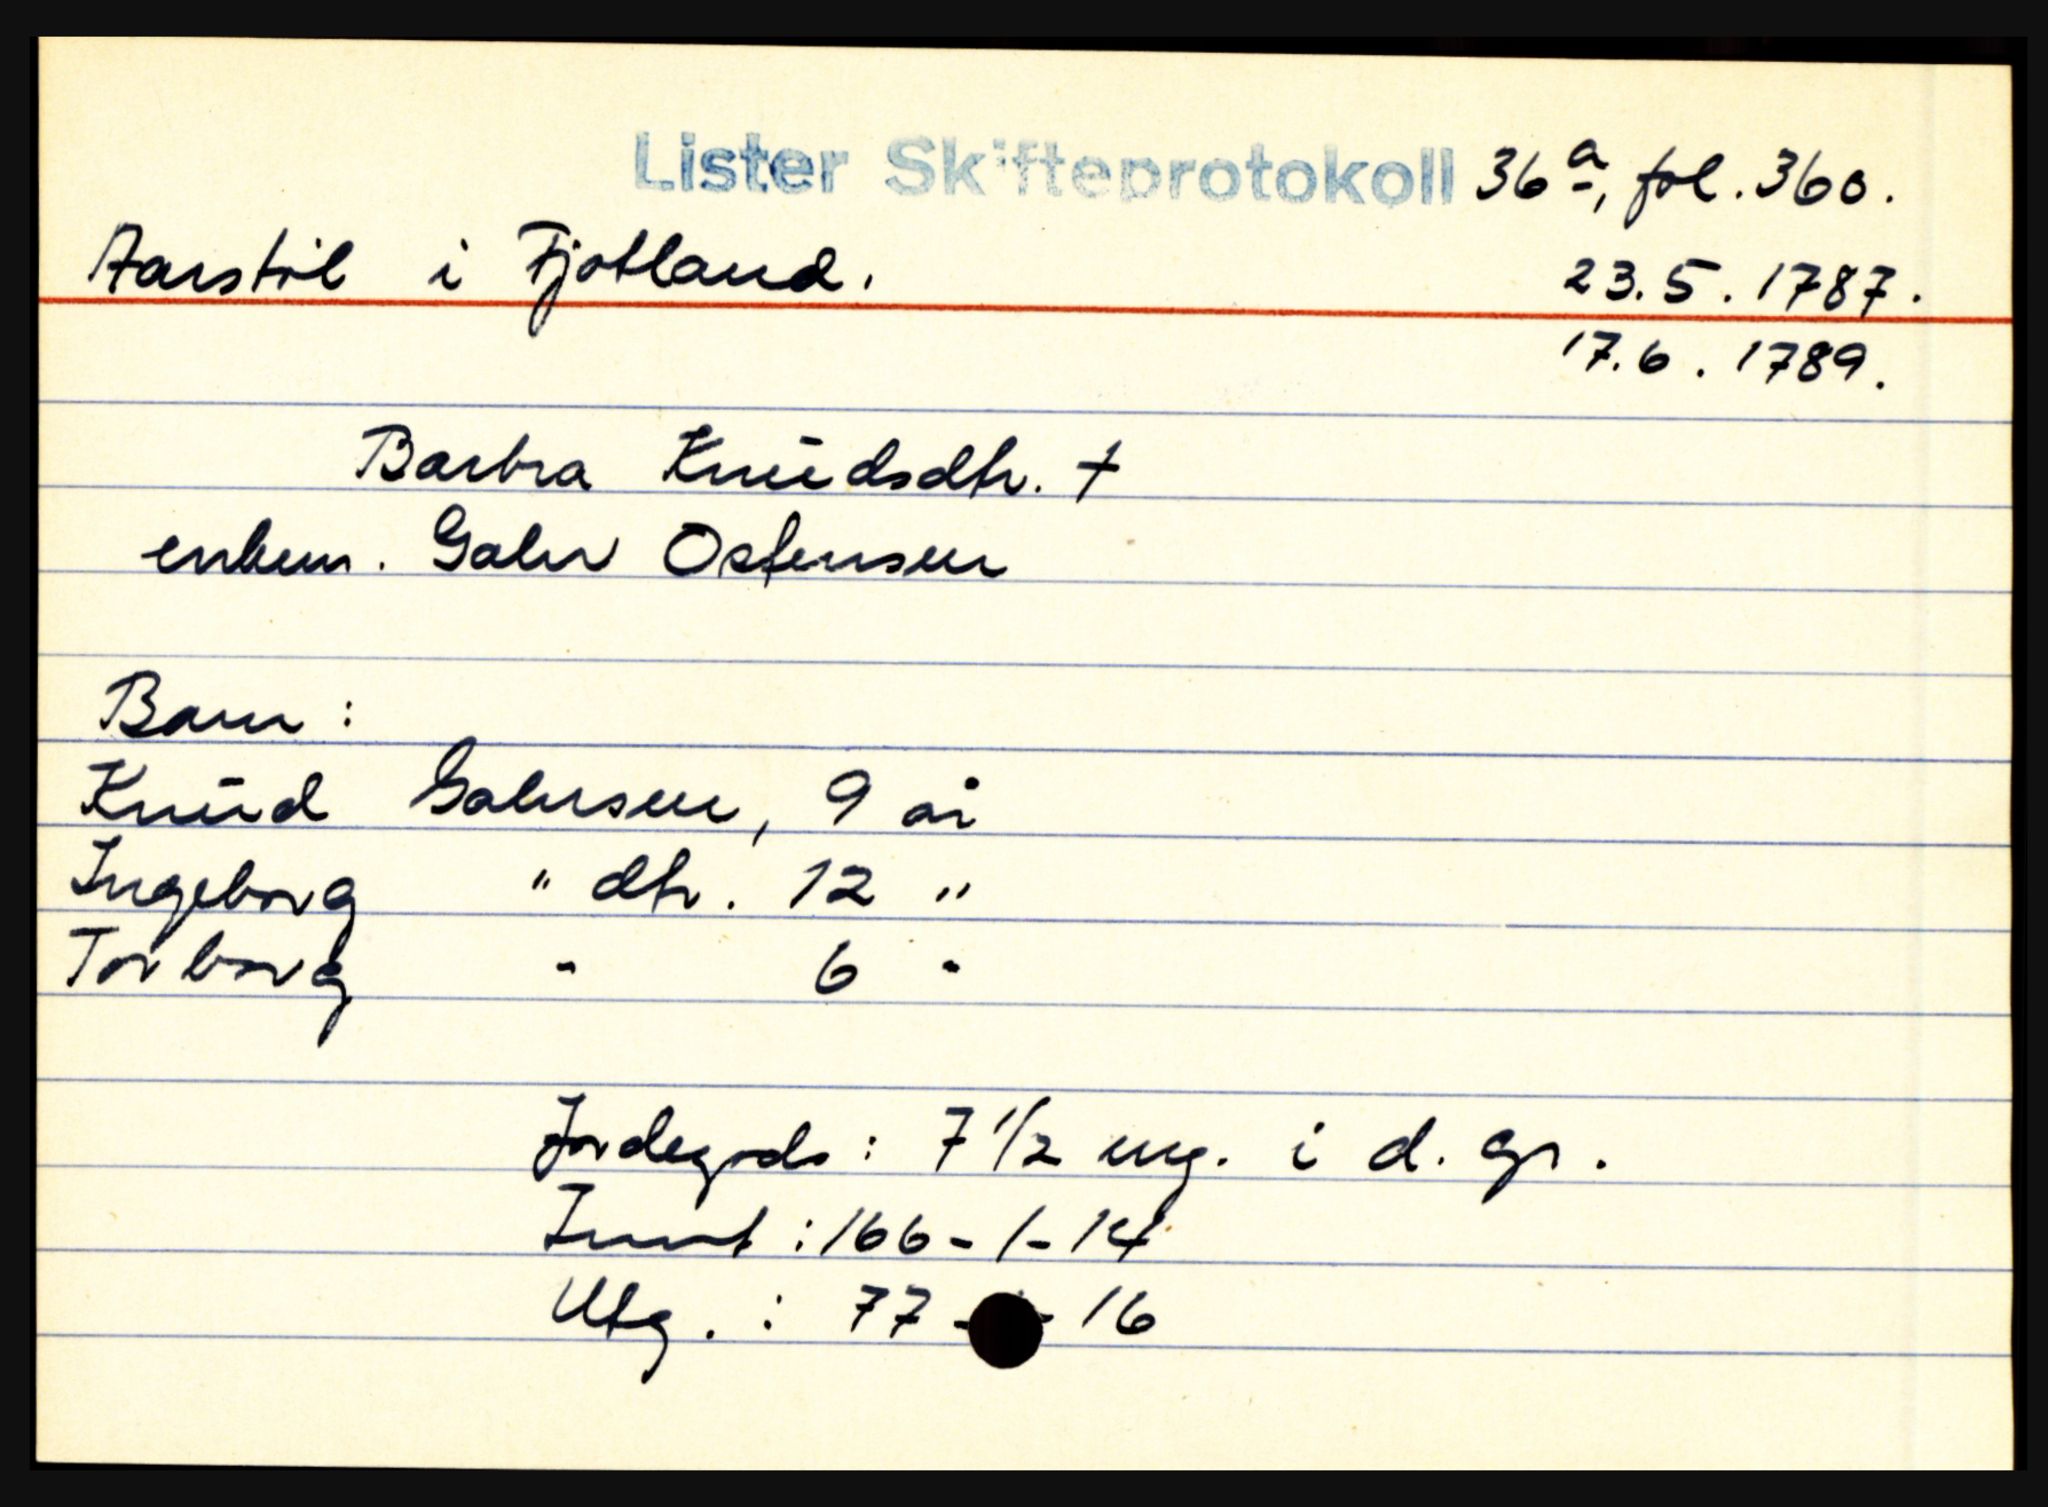 Lister Skifteprotokoll 36a, fol. 360.
Aarstöl i Fjotland. 23.5. 1787.
17.6. 1789.
Barbra Knŭdsdtr. †
enkem. Gahr Ostensen
Barn:
Knŭd Gahrsen, 9 år
Ingeborg " dtr. 12 "
Torborg " 6 "
Jordegods: 7 1/2 mg. i d. gr.
Innt: 166-1-14
Utg.: 77- -16